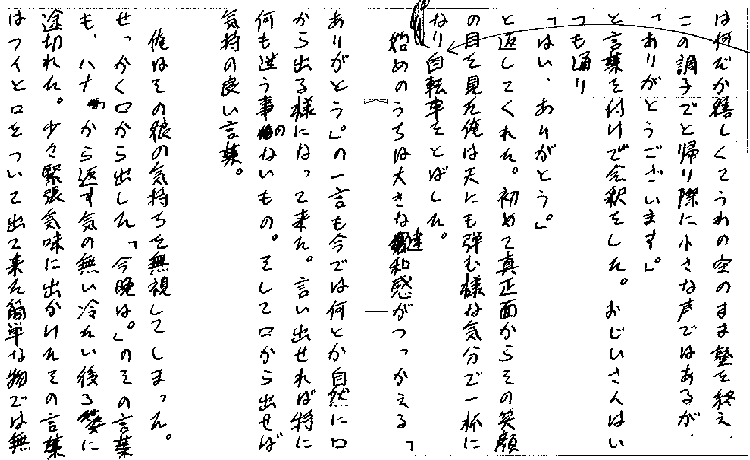 は何だか嬉しくてうわの空のまま塾を終え、
この調子でと帰り際に小さな声ではあるが、
「ありがとうございます」。
と言葉を付けて会釈をした。おじいさんはい
つも通り
「はい、ありがとう。」
と返してくれた。初めて真正面からその笑顔
の目を見た俺は天にも弾む様な気分で一杯に
なり自転車をとばした。
始めのうちは大きな違和感がつっかえる「
ありがとう」。の一言も今では何とか自然に口
から出る様になって来た。言い出せれば特に
何も迷う事のないもの。そして口から出せば
気持の良い言葉。
俺はその娘の気持ちを無視してしまった。
せっかく口から出した「今晩は。」のその言葉
も、ハナから返す気の無い冷たい後ろ姿に
途切れた。少々緊張気味に出かけたその言葉
はフイと口をついて出て来た簡単な物では無